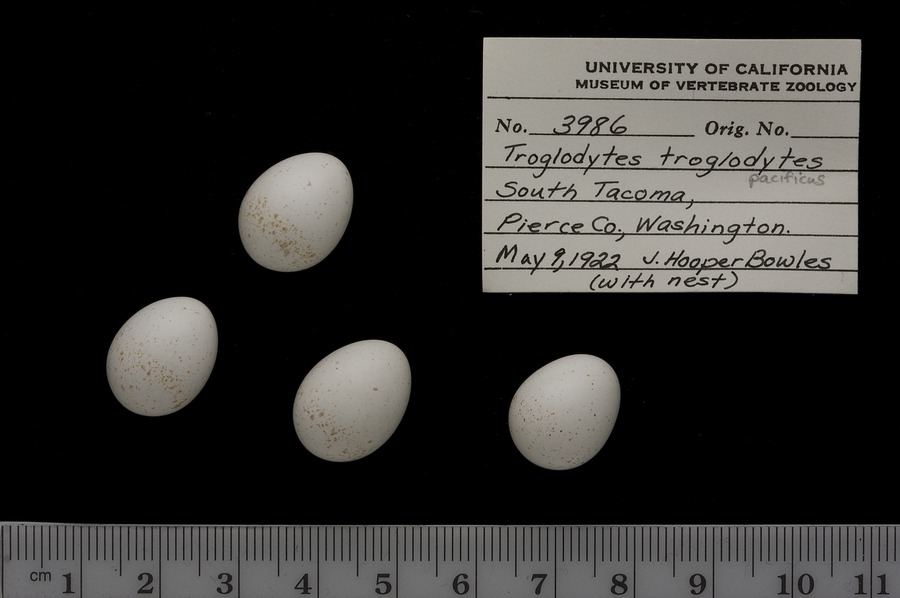 UNIVERSITY OF CALIFORNIA
MUSEUM OF VERTEBRATE ZOOLOGY
No. 3986 Orig. No.
Troglodytes troglodytes
pacificus
South Tacoma,
Pierce Co., Washington.
May 9, 1922 J. Hooper Bowles
(with nest)
cm 1 2 3 4 5 6 7 8 9 10 11